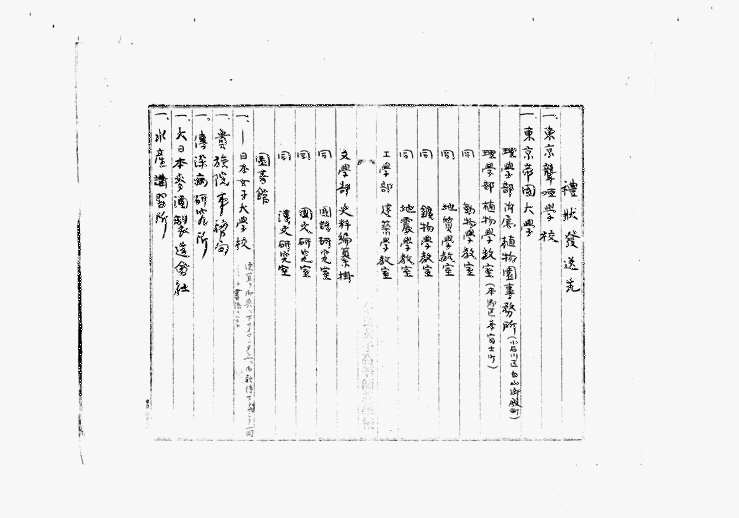 禮狀發送先
一、東京聾啞學校
一、東京帝國大學
理學部附属植物園事務所(小石川区白山御殿町)
理學部植物學教室(本郷区富士町)
同 動物學教室
同 地質學教室
同 鑛物學教室
同 地震學教室
工學部 建築學教室
文學部 史料編纂掛
同 國語研究室
同 國文研究室
同 漢文研究室
圖書館
一、日本女子大學校
一、貴族院事務局
一、傳染病研究所
一、大日本麥酒製造會社
一、水産講習所